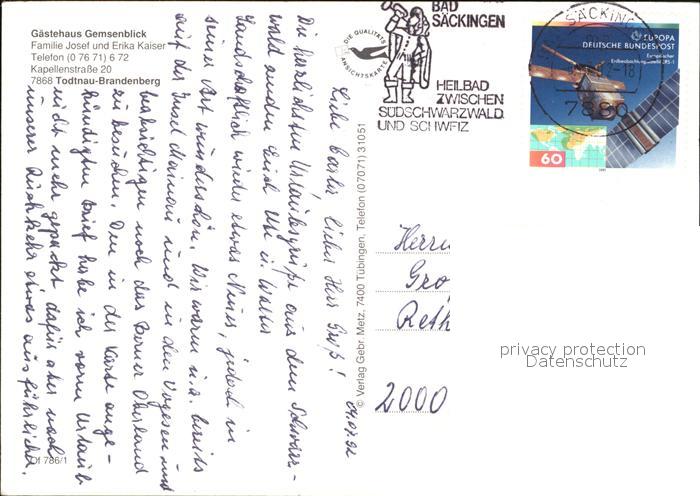 Gästehaus Gemsenblick
Familie Josef und Erika Kaiser
Telefon (0 76 71) 6 72
Kapellenstraße 20
7868 Todtnau-Brandenberg
DIE QUALITÄTS
ANSICHTSKARTE
BAD
SÄCKINGEN
HEILBAD
ZWISCHEN
SÜDSCHWARZWALD
UND SCHWEIZ
SÄCKING
7880
EUROPA
DEUTSCHE BUNDESPOST
Europäischer
Erdbeobachtungssatellit ERS-1
60
04.07.92
Liebe Herr Groß!
Die herzlichsten Urlaubsgrüße aus dem Schwarz-
wald senden Euch Ute u. Walter
Landschaftlich wieder etwas Neues, jedoch in
seiner Art wunderschön. Wir waren u.a. bereits
auf der Insel Mainau und in den Vogesen und
beabsichtigen noch das Berner Oberland
zu besuchen. Den in der Karte ange-
kündigten Brief habe ich vorm Urlaub
nicht mehr gepackt dafür aber nach
unserer Rückkehr etwas ausführlicher.
© Verlag Gebr. Metz, 7400 Tübingen, Telefon (07071) 31051
Of 786/1
Herrn
Gro
Reth
2000
privacy protection
Datenschutz